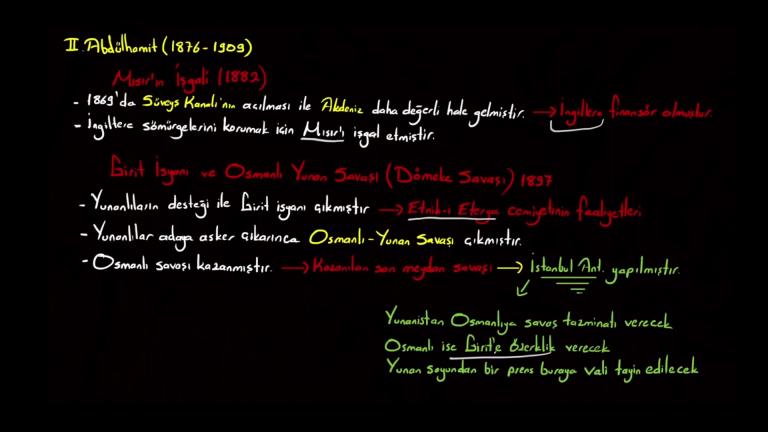 II. Abdülhamit (1876-1909)
Mısır'ın İşgali (1882)
- 1869'da Süveyş Kanalı'nın açılması ile Akdeniz daha değerli hale gelmiştir. → İngiltere finansör olmuştur.
- İngiltere sömürgelerini korumak için Mısır'ı işgal etmiştir.
Girit İsyanı ve Osmanlı Yunan Savaşı (Dömeke Savaşı) 1897
- Yunanlıların desteği ile Girit isyanı çıkmıştır → Etnik-i Eterya cemiyetinin faaliyetleri
- Yunanlılar adaya asker çıkarınca Osmanlı-Yunan Savaşı çıkmıştır.
- Osmanlı savaşı kazanmıştır. → Kazanılan son meydan savaşı → İstanbul Ant. yapılmıştır.
Yunanistan Osmanlıya savaş tazminatı verecek
Osmanlı ise Girit'e özerklik verecek
Yunan soyundan bir prens buraya vali tayin edilecek